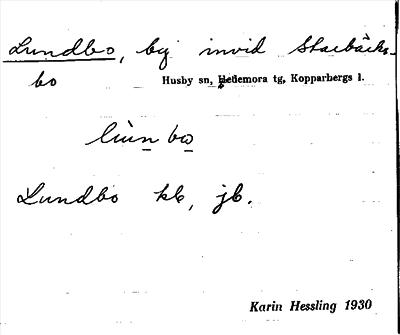 Lundbo, by invid Starbäcks-
bo
Husby sn, Hedemora tg, Kopparbergs l.
lùn bo
Lundbo kb, jb.
Karin Hessling 1930